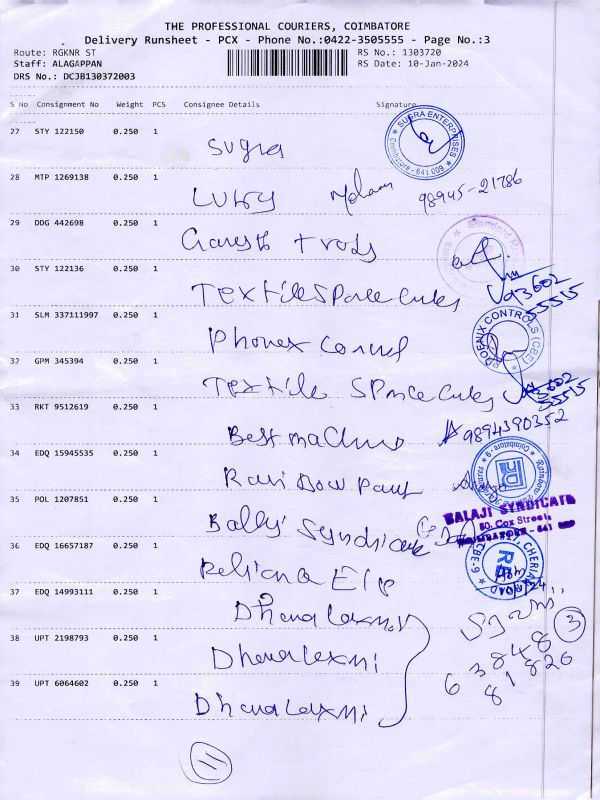 THE PROFESSIONAL COURIERS, COIMBATORE
Delivery Runsheet - PCX - Phone No.:0422-3505555 - Page No.:3
Route: RGKNR ST
RS No.: 1303720
Staff: ALAGAPPAN
RS Date: 10-Jan-2024
DRS No.: DCJB130372003
S No Consignment No Weight PCS Consignee Details Signature
27 STY 122150 0.250 1
SUGRA ENTERPRISES
Coimbatore - 641 009
Sugra
28 MTP 1269138 0.250 1
98945-21786
29 DDG 442698 0.250 1
Standard
Ganesh
30 STY 122136 0.250 1
93602
55515
Textile
31 SLM 337111997 0.250 1
PHOENIX CONTROLS (CBE)
Phonex
32 GPM 345394 0.250 1
Textile
93602
55515
33 RKT 9512619 0.250 1
9894390352
Best
34 EDQ 15945535 0.250 1
Coimbatore - 9
Ravi
35 POL 1207851 0.250 1
BALAJI SYNDICATE
80, Cox Street
COIMBATORE - 641
Syndicate
36 EDQ 16657187 0.250 1
CBE-9
RE
ROAD
37 EDQ 14993111 0.250 1
Dhanalaxmi
38 UPT 2198793 0.250 1
Dhanalaxmi
3
63848
81826
39 UPT 6064602 0.250 1
Dhanalaxmi
11